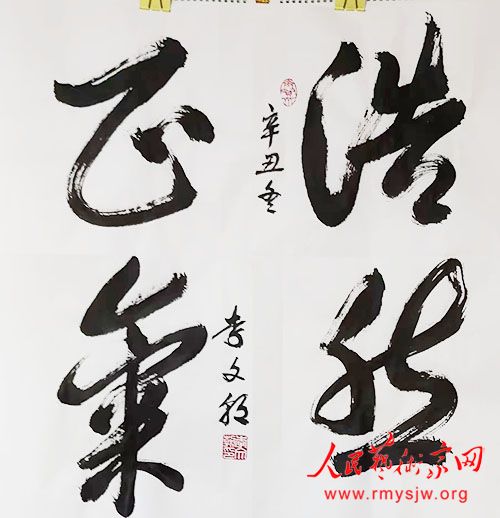 浩然
正氣
辛丑冬
李文
人民藝術家网
www.rmysjw.org